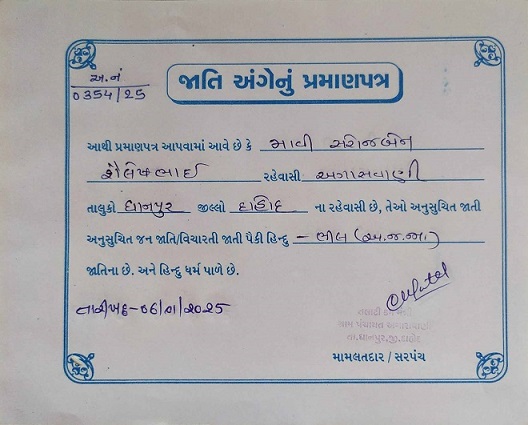 અ.નં
0354/25
જાતિ અંગેનું પ્રમાણપત્ર
આથી પ્રમાણપત્ર આપવામાં આવે છે કે માવી સરોજબેન
શૈલેષભાઈ રહેવાસી અગાસવાણી
તાલુકો ધાનપુર જીલ્લો દાહોદ ના રહેવાસી છે, તેઓ અનુસુચિત જાતી
અનુસુચિત જન જાતિ/વિચારતી જાતી પૈકી હિન્દુ - ભીલ (અ.જ.જા.)
જાતિના છે. અને હિન્દુ ધર્મ પાળે છે.
તારીખ:-06/01/2025
તલાટી કમ મંત્રી
ગ્રામ પંચાયત અગાસવાણી
તા.ધાનપુર,જી.દાહોદ
મામલતદાર / સરપંચ